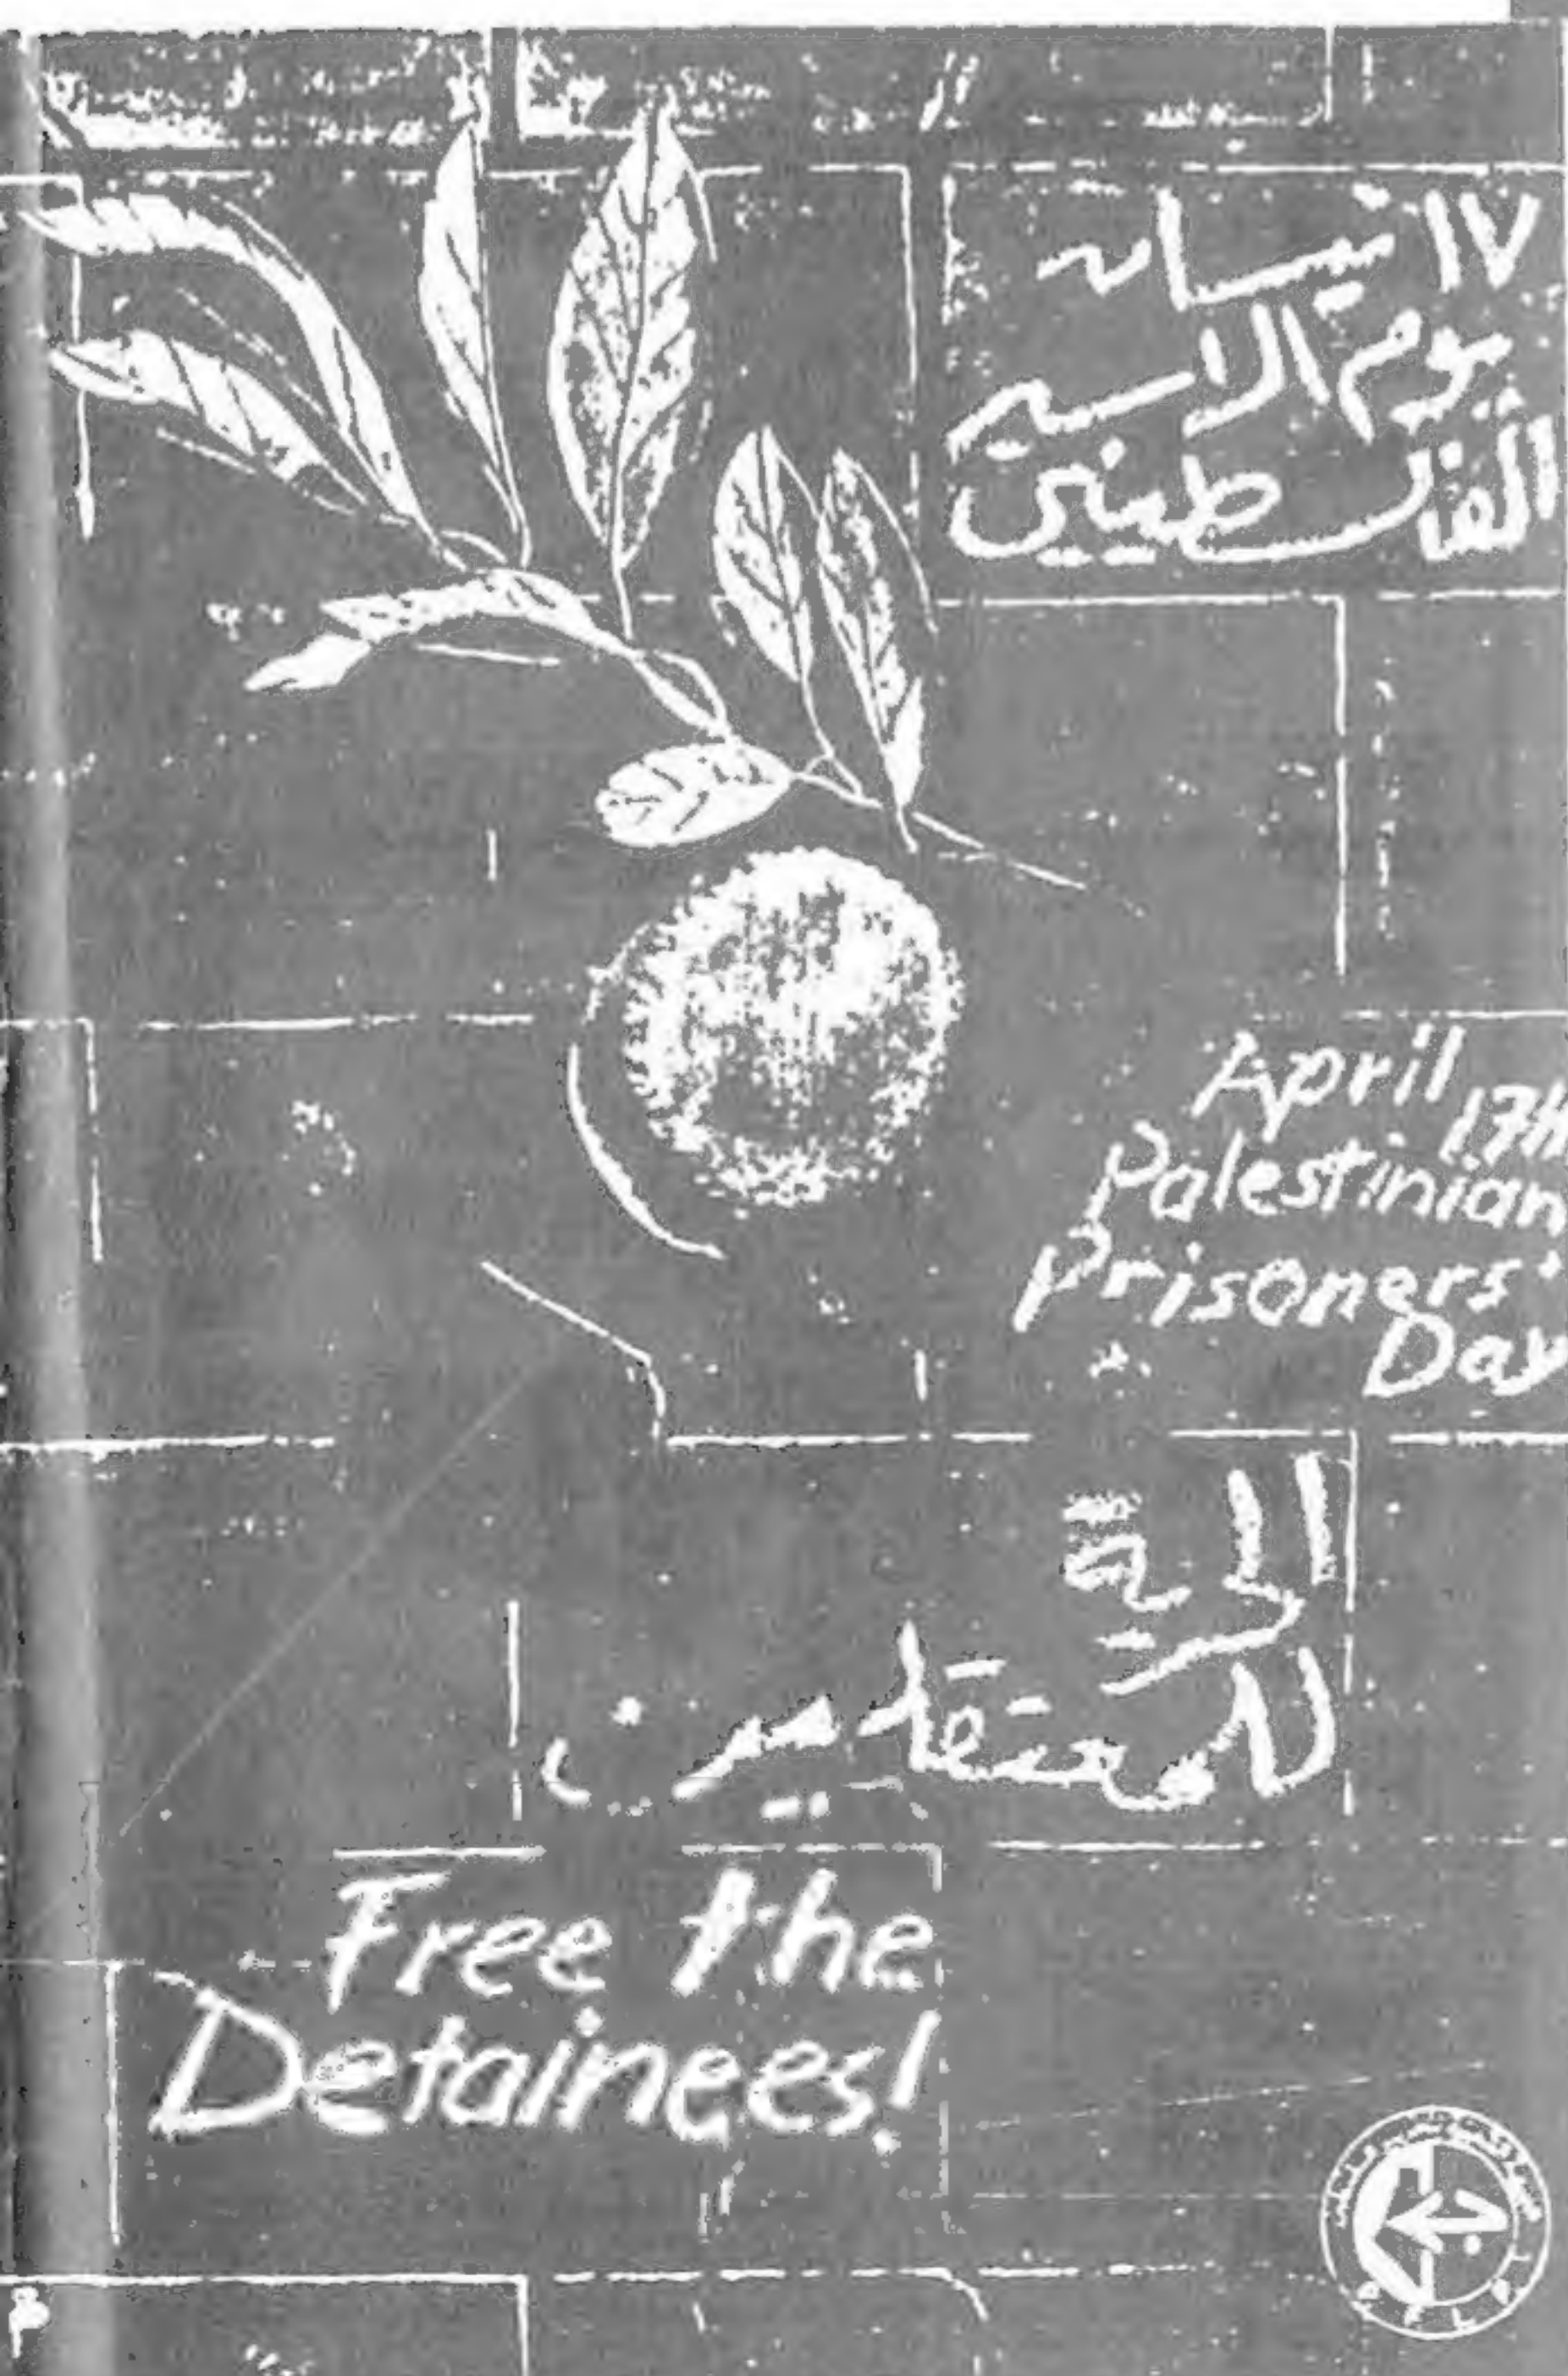 ١٧ نيسان
يوم الاسير
الفلسطيني
April 17th
Palestinian
Prisoners'
Day
الحرية
للمعتقلين
Free the
Detainees!
P F L P